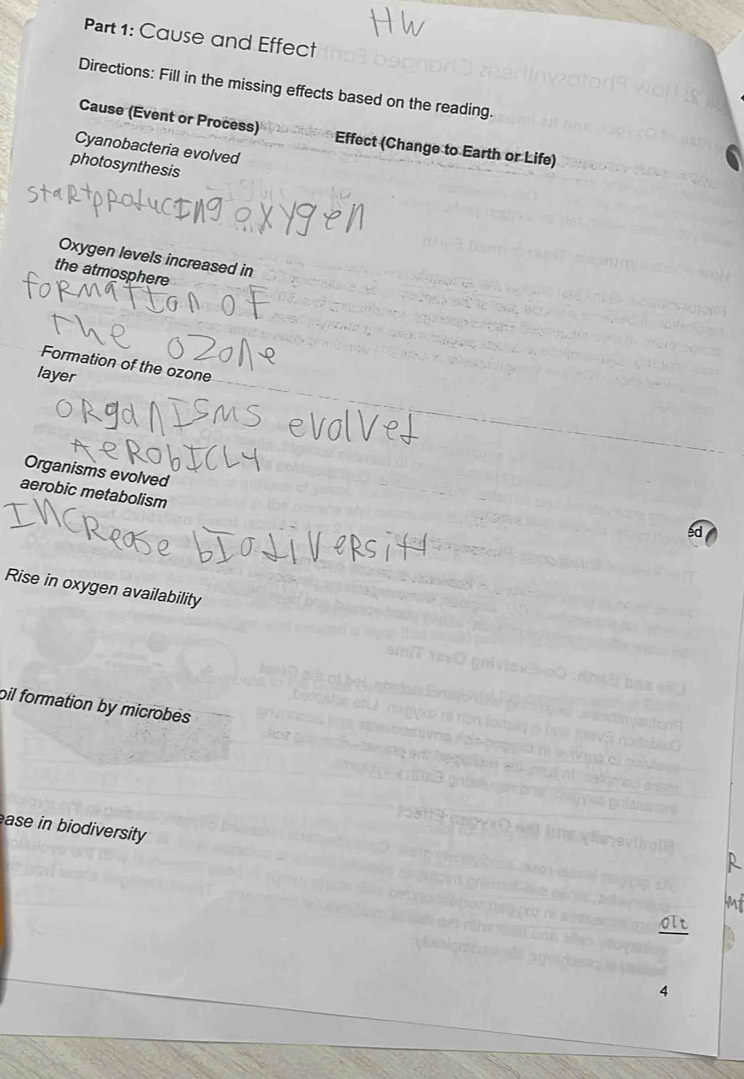 HW
Part 1: Cause and Effect
Directions: Fill in the missing effects based on the reading.
Cause (Event or Process) Effect (Change to Earth or Life)
Cyanobacteria evolved
photosynthesis
staRtpRoducIng oxygen
Oxygen levels increased in
the atmosphere
foRMaTIon of
The ozone
Formation of the ozone
layer
oRganISMS evolved
AeRobICLY
Organisms evolved
aerobic metabolism
INCRease bIodiveRsity
ed
Rise in oxygen availability
oil formation by microbes
ease in biodiversity
R
olt
4